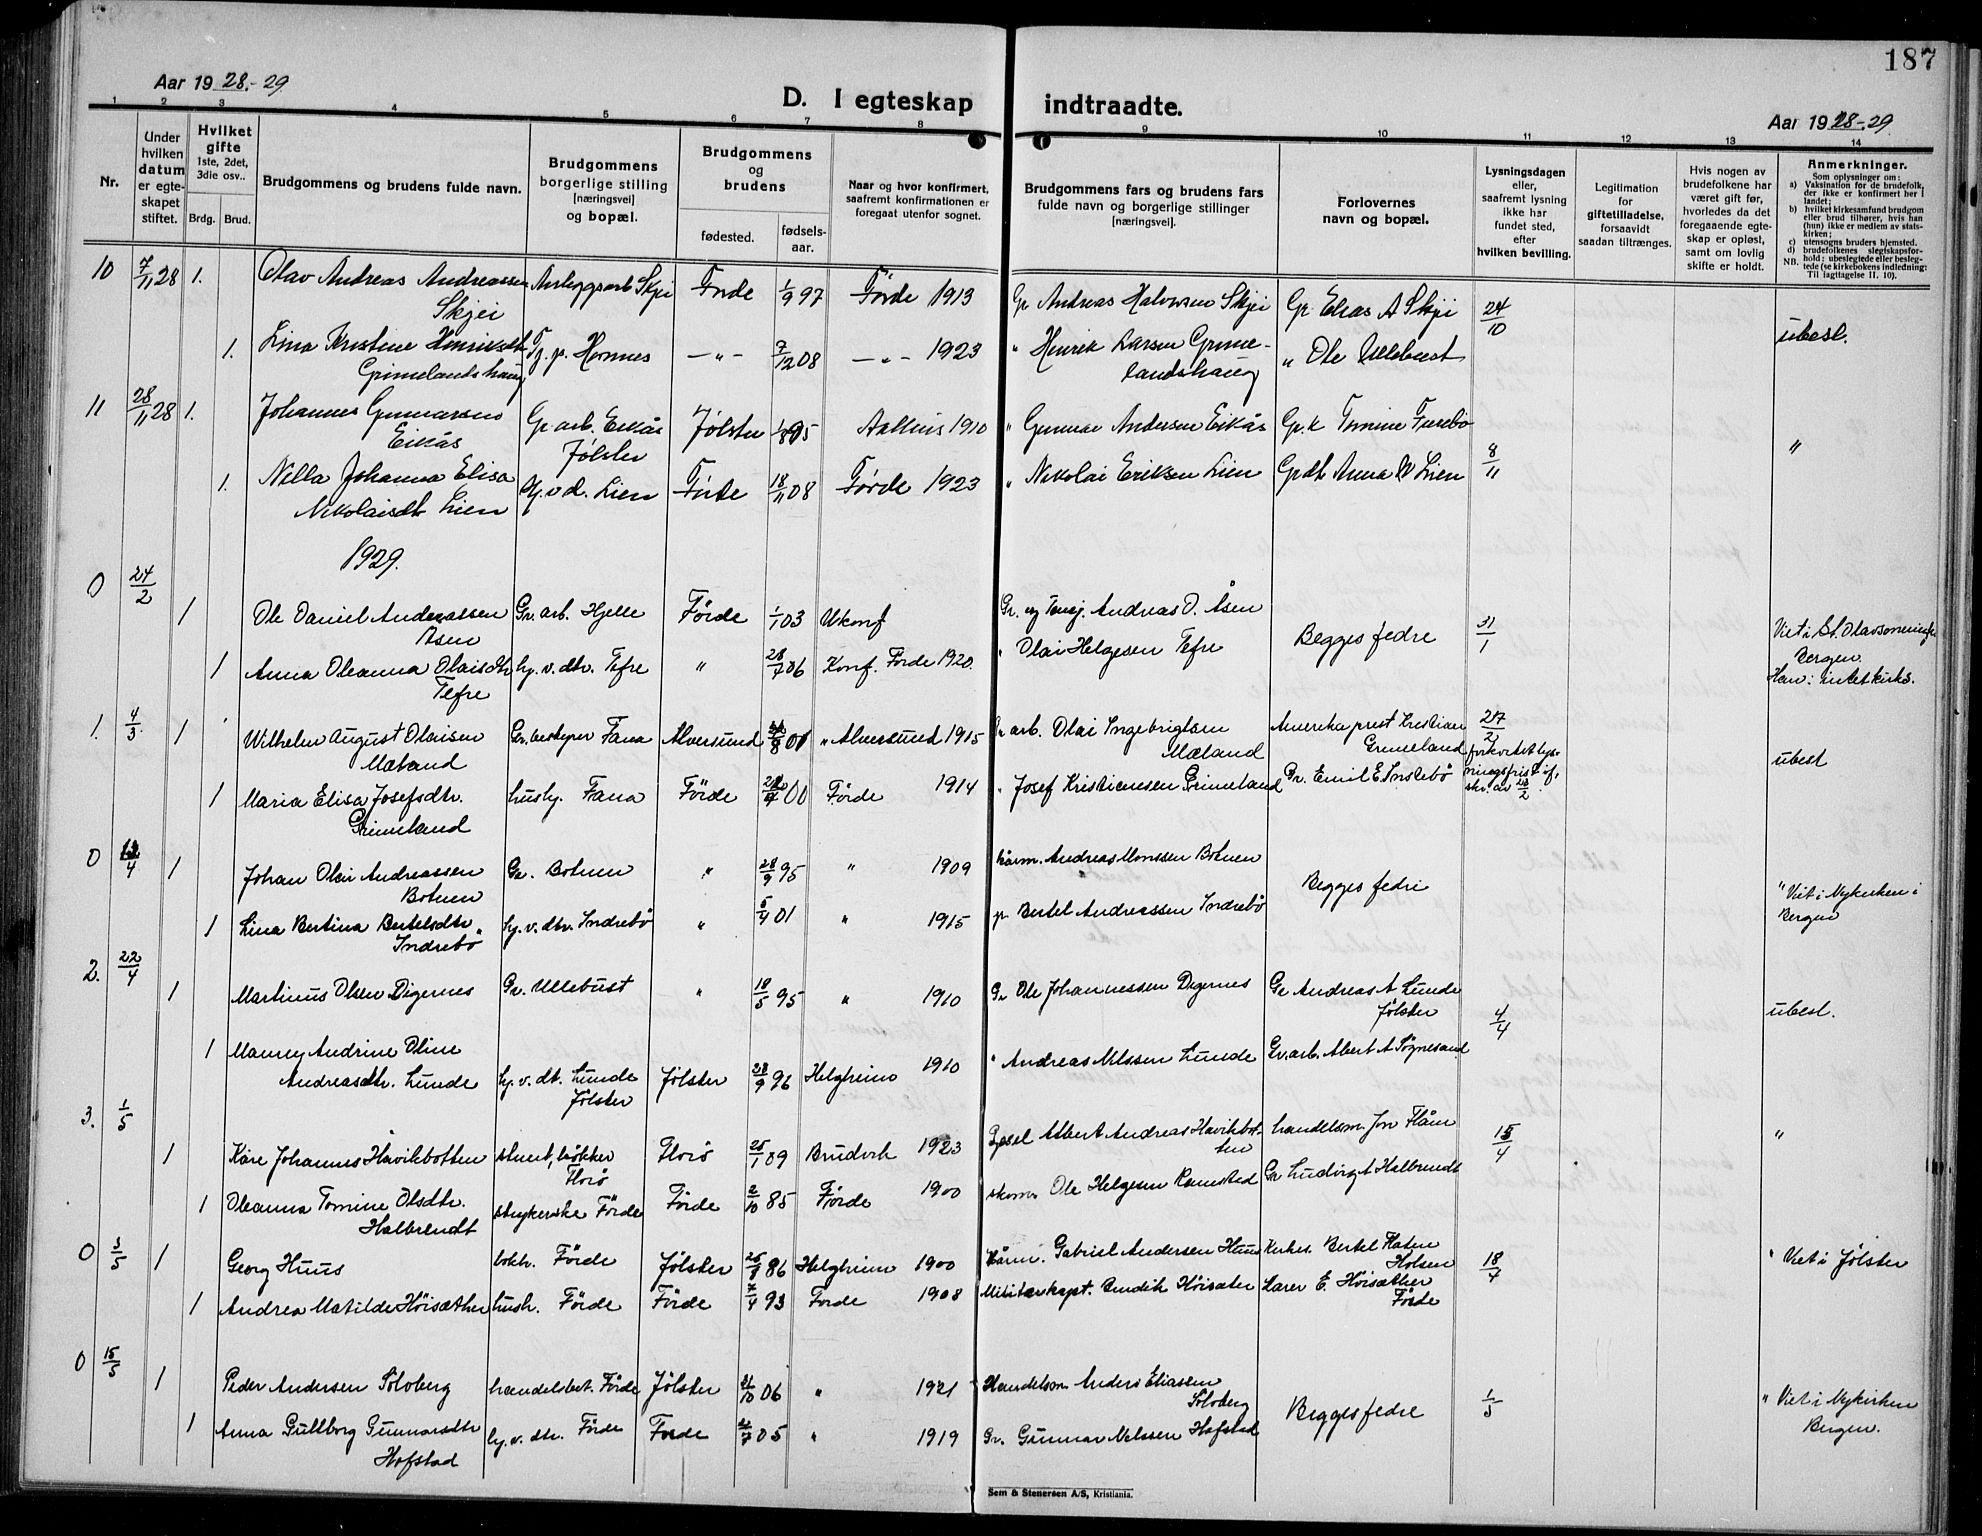 187
Aar 1928.-29
D. I egteskap indtraadte.
Aar 1928-29
1 2 3 4 5 6 7 8 9 10 11 12 13 14
Nr.
Under hvilken datum er egteskapet stiftet.
Hvilket gifte 1ste, 2det, 3die osv..
Brdg. Brud.
Brudgommens og brudens fulde navn.
Brudgommens borgerlige stilling [næringsvei] og bopæl.
Brudgommens og brudens
fødested. fødselsaar.
Naar og hvor konfirmert, saafremt konfirmationen er foregaat utenfor sognet.
Brudgommens fars og brudens fars fulde navn og borgerlige stillinger [næringsvei].
Forlovernes navn og bopæl.
Lysningsdagen eller, saafremt lysning ikke har fundet sted, efter hvilken bevilling.
Legitimation for giftetilladelse, forsaavidt saadan tiltrænges.
Hvis nogen av brudefolkene har været gift før, hvorledes da det foregaaende egteskap er opløst, samt om lovlig skifte er holdt.
Anmerkninger.
Som oplysninger om:
a) Vaksination for de brudefolk, der ikke er konfirmert her i landet;
b) hvilket kirkesamfund brudgom eller brud tilhører, hvis han (hun) ikke er medlem av statskirken;
c) utensogns bruders hjemsted.
d) brudefolkenes slegtskapsforhold: ubeslegtede eller beslegtede (se kirkebokens indledning: NB. Til iagttagelse II, 10).
10 7/11 28 1. Olav Andreas Andreassen Skjei Anleggsarb Skjei Förde 1/9 97 Förde 1913 Gr Andreas Halvorsen Skjei Gr. Elias A Skjei 24/10
1. Lina Kristine Henriksdtr Grimelandshaug Tj. p. Hornes —"— 7/12 08 —"— 1923 " Henrik Larsen Grimelandshaug " Ole Ullebust ubesl.
11 28/11 28 1. Johannes Gunnarsen Eikås Gr arb. Eikås Jølster Jølster 1/8 95 Aalhus 1910 " Gunnar Andersen Eikås Gr. k Tomine Furebø 8/11 "
1. Nella Johanna Elisa Nikolaisdtr Lien Hj. v d. Lien Førde 18/11 08 Førde 1923 " Nikolai Eriksen Lien Gr dt Anna N Lien
1929.
0 24/2 1 Ole Daniel Andreassen Åsen Gr. arb. Hjelle Förde 1/1 03 Ukonf Gr. og Tømj. Andreas O. Åsen Begges fedre 31/1 Viet i St. Olavsmenigh Bergen.
1 Anna Oleanna Olaisdtr Tefre hj. v. dtr. Tefre " 28/7 06 Konf. Förde 1920. " Olai Helgesen Tefre Han: intet kirks.
1. 4/3. 1 Wilhelm August Olaisen Mæland Gr. bestyrer Fana Alversund 8 01 " Alversund 1915 Gr arb. Olai Ingebrigtsen Mæland Amerika prest Kristian Grimeland 27/2 forkortet lysningsfrist if. skr. av 23/2 ubesl
1 Maria Elisa Josefsdtr. Grimeland hushj. Fana Förde 00 Förde 1914 " Josef Kristiansen Grimeland Gr. Emil E Instebö
0 /4 1 Johan Olai Andreassen Botnen Gr. Botnen " 28/9 95 " 1909 kårm. Andreas Monssen Botnen Begges fedre " Viet i Nykirken i Bergen
1 Lina Bertina Bertelsdtr. Indrebö hj. v. dtr. Indrebö " 5/4 01 " 1915 gr Bertel Andreassen Indrebö
2. 22/4 1 Martinus Olsen Digernes Gr. Ullebust " 18/5 95 " 1910 Gr Ole Johannessen Digernes Gr Andreas A Lunde Jölster 4/4 ubesl.
1 Andrine Oline Andreasdtr. Lunde hj. v. dt. Lunde Jölster Jölster 28/9 96 Helgheim 1910 " Andreas Nilssen Lunde Gr. arb. Albert A Sögnesand
3. 1/5 1 Kåre Johannes Havikbotten stuert, bökker Florö Florö 25/1 09 Brudvik 1923 Albert Andreas Havikbotten handelsm Jon Flåm 15/4 "
1 Oleanna Tomine Olsdtr. Halbrendt strykerske Förde Förde 2/10 85 Förde 1900 skom. Ole Helgesen Ramstad Gr Ludvig A Halbrendt
0 3/5 1 Georg Huus bokh. Förde Jölster 86 Helgheim 1900 Kårm. Gabriel Andersen Huus Kirkes. Bertel Flaten Holsen 18/4 " Viet i Jölster
1 Andrea Matilde Höisæther hush. Förde Förde 7/4 93 Förde 1908 Militærkapt. Bendik Höisæter Lærer E. Höisæther Förde
0 15/5 1 Peder Andersen Solvberg handelsbet. Förde Jölster 21/10 06 " 1921 Handelsm. Anders Eliassen Solvberg Begges fedre 1/5 " Viet i Nykirken Bergen.
1 Anna Gullborg Gunnarsdtr Hofstad hj. v. dtr. Förde Förde /7 05 " 1919 Gr. Gunnar Nilssen Hofstad
Sem & Stenersen A/S, Kristiania.